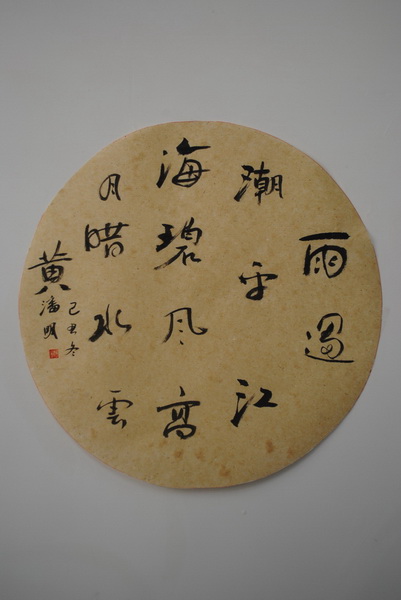 雨過
潮平江
海碧风高
月暗水雲
黃
己丑冬
潘明